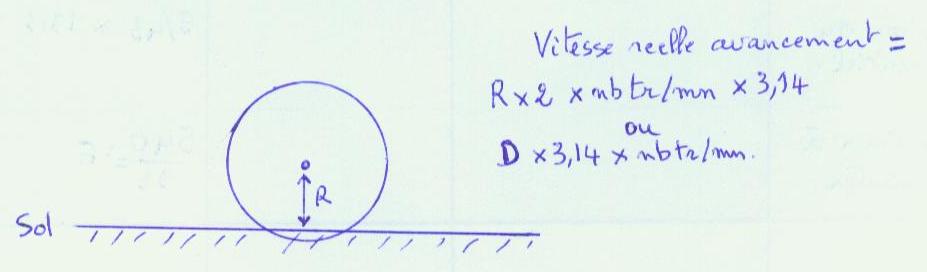 Vitesse reelle avancement =
R x 2 x nb tr/mn x 3,14
ou
D x 3,14 x nb tr/mn.
R
Sol